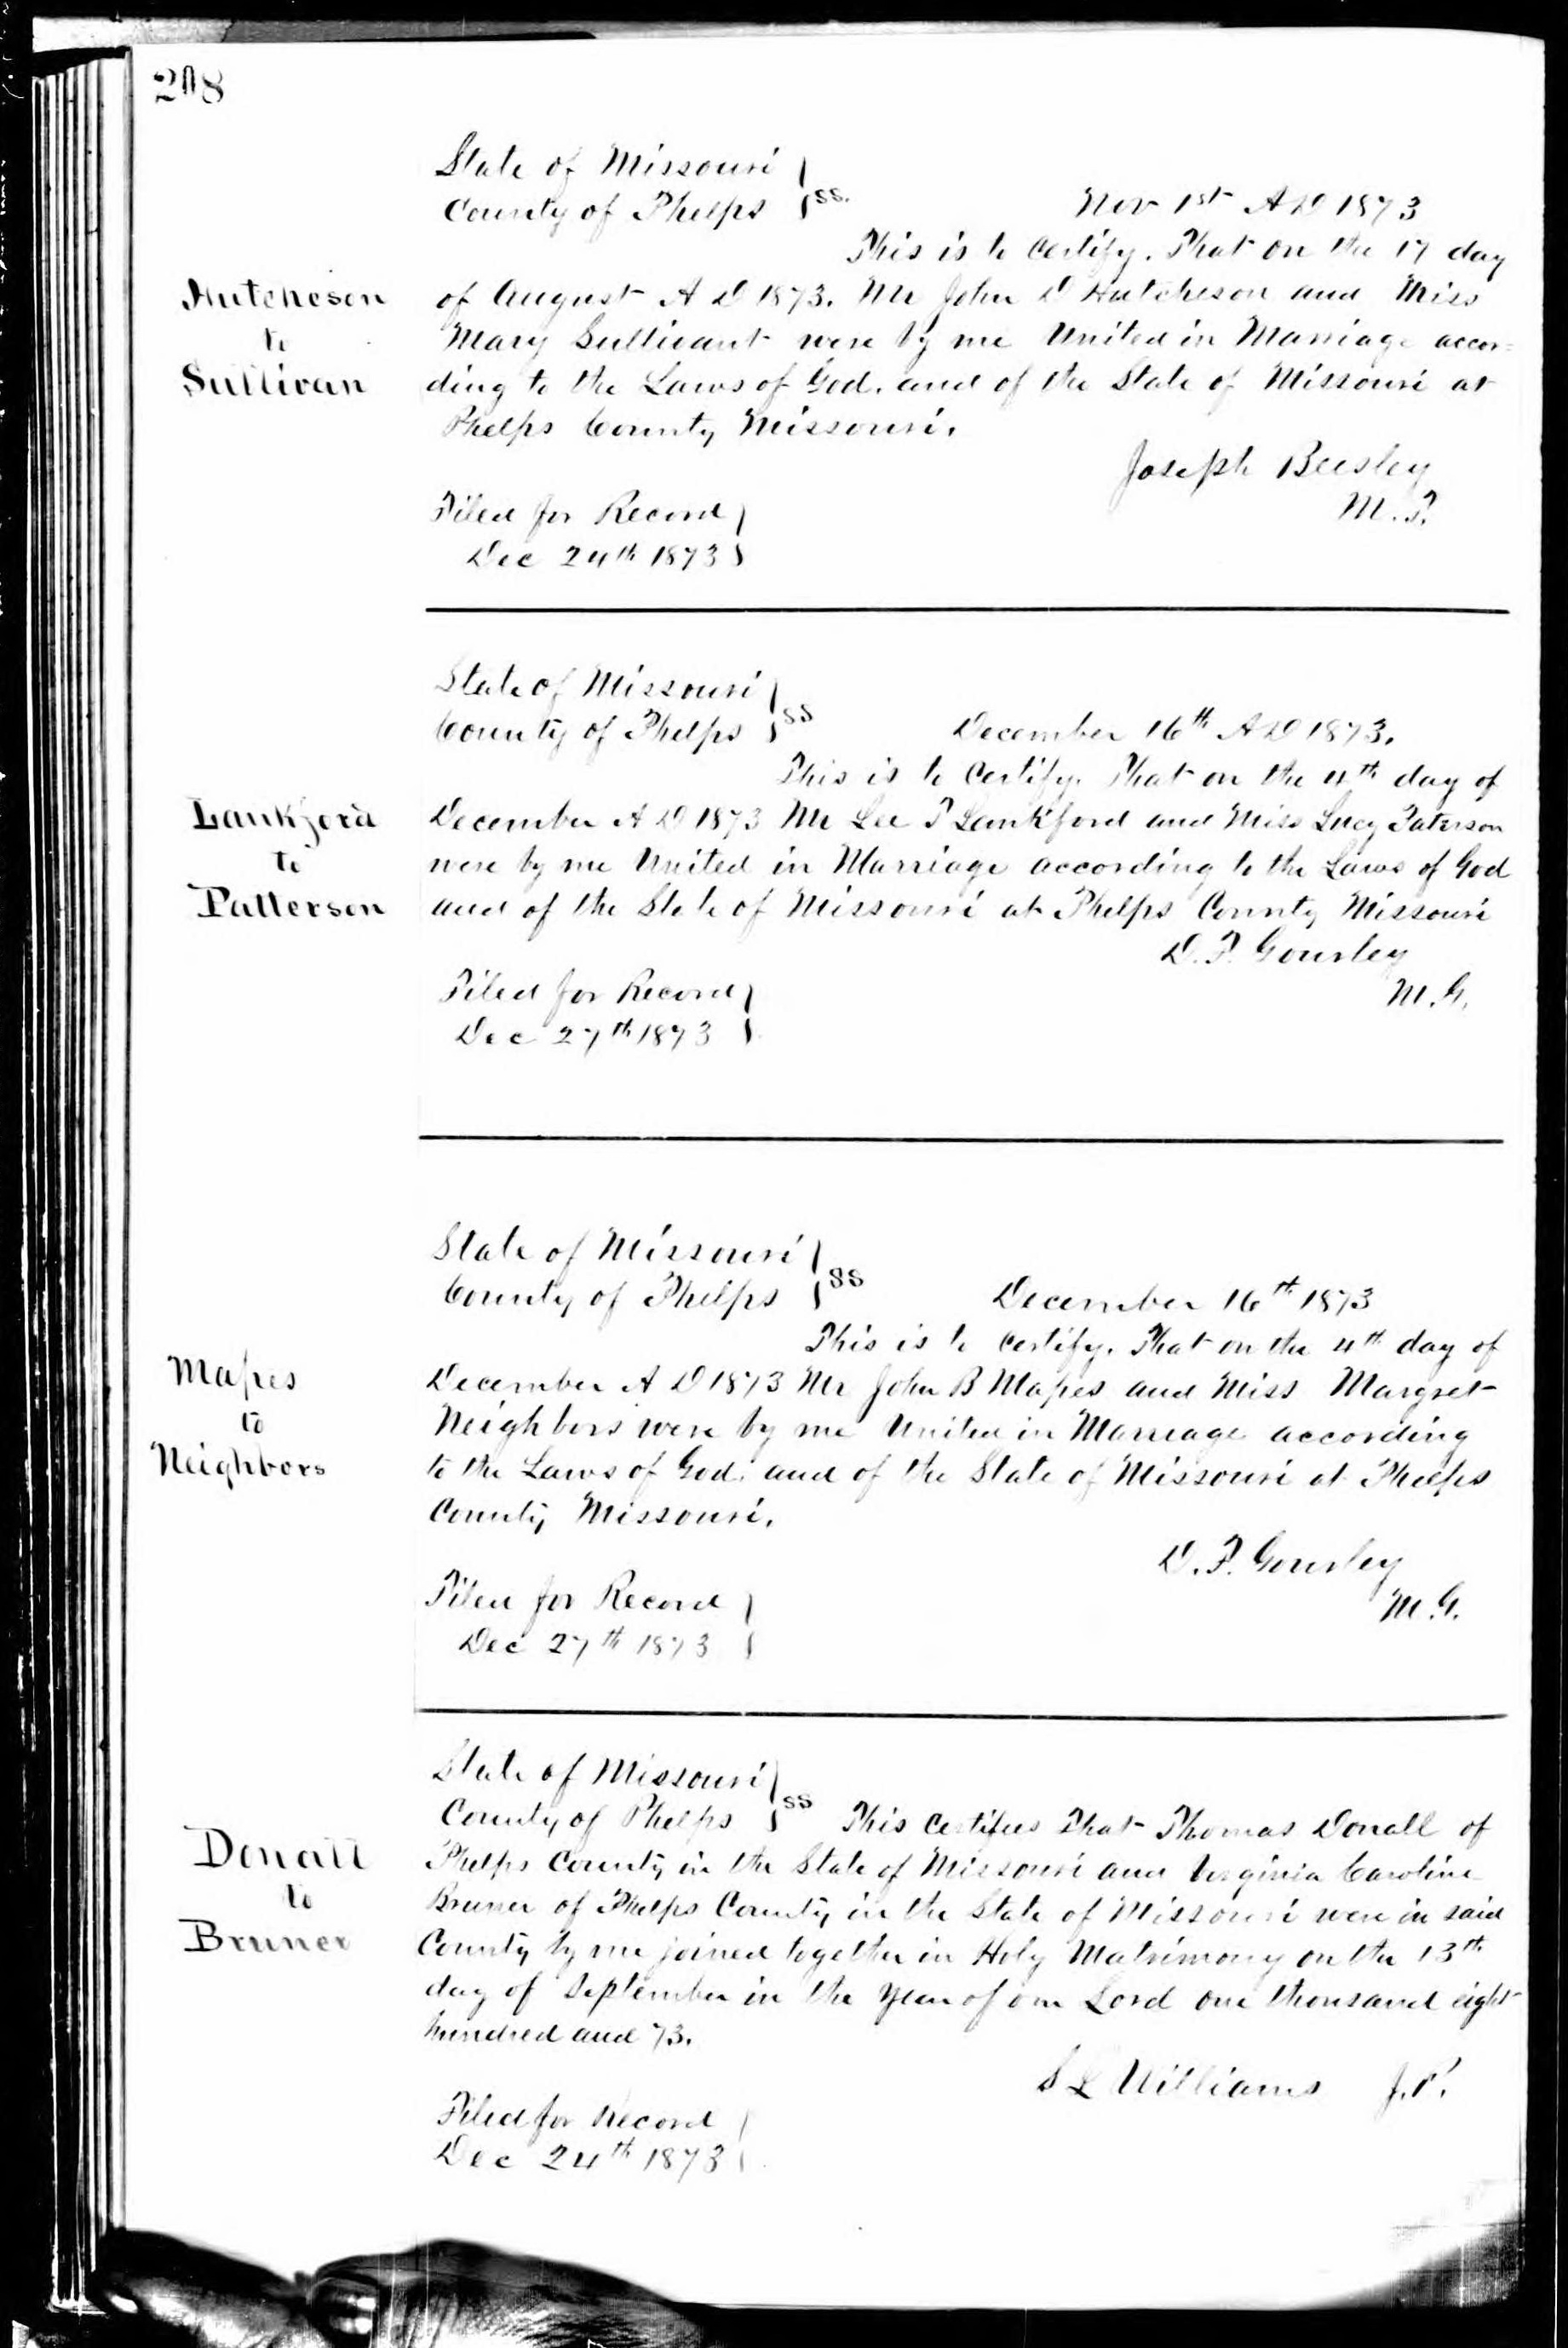 208
State of Missouri
County of Phelps } ss.
Nov 1st A D 1873
This is to Certify. That on the 17 day
Hutcheson
to
Sullivan
of August A D 1873. Mr John D Hutcheson and Miss
Mary Sullivant were by me United in Marriage accor=
ding to the Laws of God. and of the State of Missouri at
Phelps County Missouri.
Joseph Beesley
Filed for Record
Dec 24th 1873 }
State of Missouri
County of Phelps } ss
December 16th A D 1873.
This is to Certify. That on the 4th day of
Lankford
to
Patterson
December A D 1873 Mr Lee P Lankford and Miss Lucy Paterson
were by me United in Marriage according to the Laws of God
and of the State of Missouri at Phelps County Missouri
D. P. Gourley
M. G.
Filed for Record
Dec 27th 1873 }
State of Missouri
County of Phelps } ss
December 16th 1873
This is to Certify. That on the 4th day of
Mapes
to
Neighbors
December A D 1873 Mr John B Mapes and Miss Margret
Neighbors were by me United in Marriage according
to the Laws of God. and of the State of Missouri at Phelps
County Missouri.
D. P. Gourley
M. G.
Filed for Record
Dec 27th 1873 }
State of Missouri
County of Phelps } ss This Certifies That Thomas Donall of
Donall
to
Bruner
Phelps County in the State of Missouri and Virginia Caroline
Bruner of Phelps County in the State of Missouri were in said
County by me joined together in Holy Matrimony on the 13th
day of September in the Year of our Lord one thousand eight
hundred and 73.
S L Williams J. P.
Filed for Record
Dec 24th 1873 }